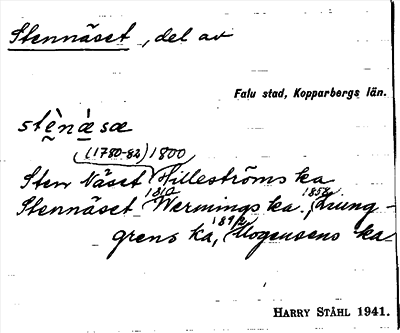 Stennäset, del av
Falu stad, Kopparbergs län.
stènæ̀sæ
(1780-82) 1800
Sten Näset Hilleströms ka
1810 1858
Stennäset Wermings ka., Ljung-
1892
grens ka, Mogensens ka
HARRY STÅHL 1941.